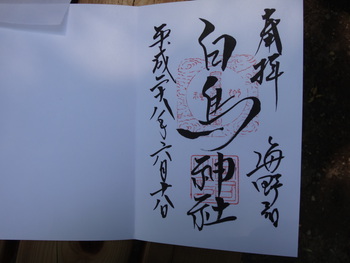 奉拝
海野宿
白鳥神社
平成二十八年六月十八日